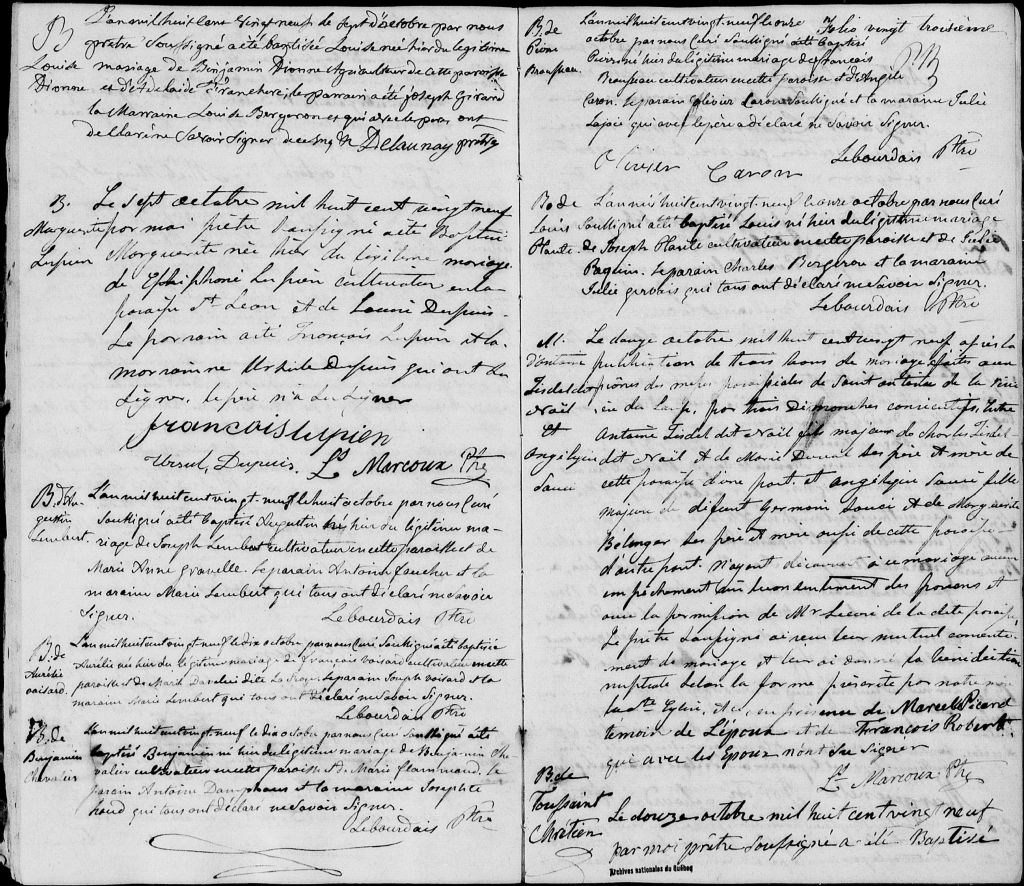 B
Louise
Dionne
L'an mil huit cent vingt neuf le sept d'octobre par nous
prêtre soussigné a été baptisée Louise née hier du légitime
mariage de Benjamin Dionne Agriculteur de cette paroisse
et d'Adelaide Franchere; le parrain a été Joseph Girard
la Marraine Louise Bergeron qui avec le père ont
déclaré ne savoir signer Delaunay prêtre
B.
Marguerite
Lupien
Le sept octobre mil huit cent vingt neuf
par moi prêtre soussigné a été Baptisé
Marguerite née hier du légitime mariage
de Lupien cultivateur en la
paroisse St. Leon et de Louise Dupuis.
Le parrain a été François Lupien et la
marraine Ursule Dupuis qui ont su
signer, le père n'a su signer
francois lupien
Ursul, Dupuis. Ls. Marcoux Ptre
B. d'Au-
gustin
Lembert.
L'an mil huit cent vingt-neuf le huit octobre par nous Curé
Soussigné a été baptisé Augustin né hier du légitime ma-
riage de Joseph Lembert cultivateur en cette paroisse et de
Marie Anne gravelle. Le parain Antoine faucher et la
maraine Marie Lembert qui tous ont déclaré ne savoir
Signer. Lebourdais Ptre
B. de
Aurélie
voisard.
L'an mil huit cent vingt-neuf le dix octobre par nous Curé Soussigné a été baptisée
Aurélie née hier du légitime mariage de François voisard cultivateur en cette
paroisse et de Marie dite Le parain Joseph voisard et la
maraine Marie Lembert qui tous ont déclaré ne savoir Signer.
Lebourdais Ptre
B. de
Benjamin
Chevalier
L'an mil huit cent vingt-neuf le dix octobre par nous Curé Soussigné a été
baptisé Benjamin né hier du légitime mariage de Benjamin Che-
valier cultivateur en cette paroisse et de Marie Flammand. le
parain Antoine Damphous et la maraine Josephte
houd qui tous ont déclaré ne savoir Signer.
Lebourdais Ptre
Folio vingt troisième
B. de
Piere
Brousseau.
L'an mil huit cent vingt-neuf le onze
octobre par nous Curé Soussigné a été baptisé
Piere né hier du légitime mariage de françois
Brousseau cultivateur en cette paroisse et d'Angèle
Caron. Le parain Olivier Caron Soussigné et la maraine Julie
Lajoie qui avec le père a déclaré ne savoir Signer.
Lebourdais Ptre
Olivier Caron
B. de
Louis
Plante.
L'an mil huit cent vingt-neuf le onze octobre par nous Curé
Soussigné a été baptisé Louis né hier du légitime mariage
de Joseph Plante cultivateur en cette paroisse et de Julie
Paquin. Le parain Charles Bergeron et la maraine
Julie gervais qui tous ont déclaré ne savoir Signer.
Lebourdais Ptre
M.
d'antoine
Tisdel dit
Noël
Et
Angélique
Sauci
Le douze octobre mil huit cent vingt neuf après la
publication de trois bans de mariage faites aux
prônes des messes paroissiales de Saint antoine de la rivière
du Loup, par trois dimanches consécutifs, entre
Antoine Tisdel dit Noël fils majeur de charles Tisdel
dit Noël et de Marie ses père et mère de
cette paroisse d'une part; et angelique Sauci fille
majeure de défunt Germain Sauci et de Marguerite
Belanger ses père et mère aussi de cette paroisse
d'autre part. N'ayant découvert à ce mariage aucun
empêchement du consentement des parens et
avec la permission de Mr. Le curé de la dite paroisse
Le prêtre Soussigné ai reçu leur mutuel consente-
ment de mariage et leur ai donné la bénédiction
nuptiale selon la forme préscrite par notre mère
la Ste. Eglise, et ce en présence de Marcel Picard
témoin de l'époux et de François Robert
qui avec les époux n'ont su signer
Ls. Marcoux Ptre
B. de
Toussaint
Chrétien
Le douze octobre mil huit cent vingt neuf
par moi prêtre Soussigné a été Baptisé
Archives nationales du Québec